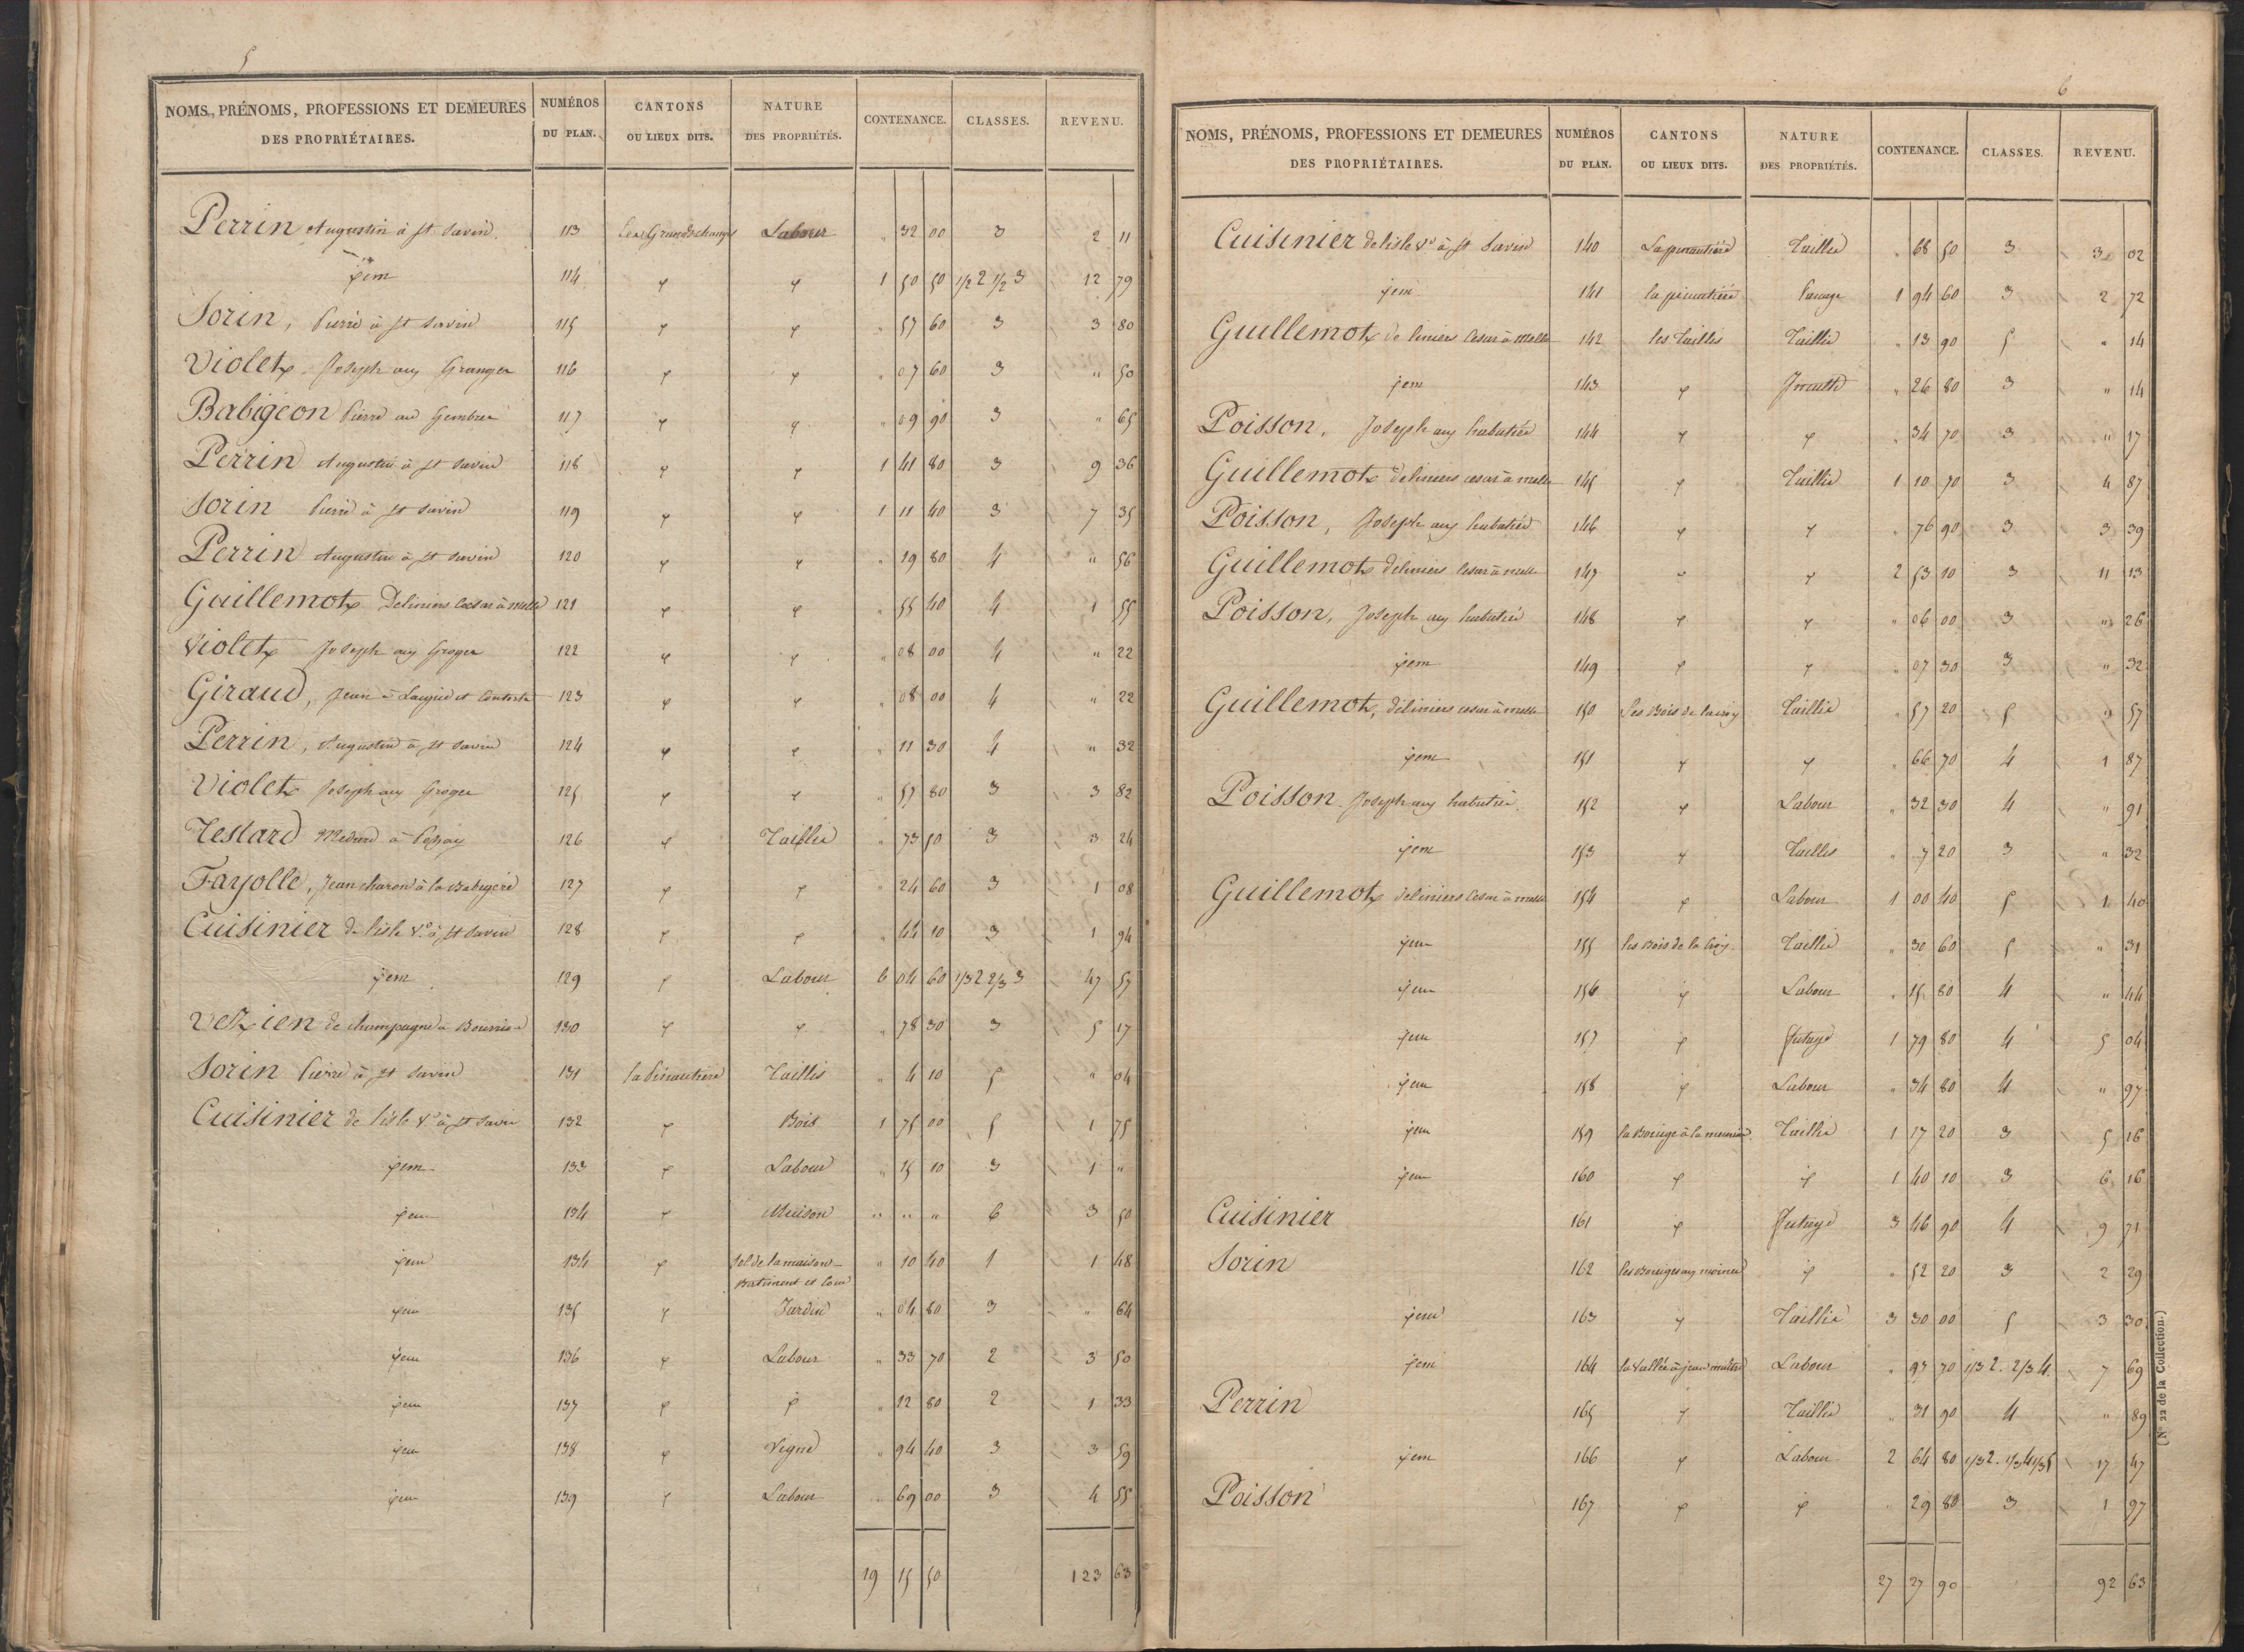 5
NOMS, PRÉNOMS, PROFESSIONS ET DEMEURES DES PROPRIÉTAIRES. NUMÉROS DU PLAN. CANTONS OU LIEUX DITS. NATURE DES PROPRIÉTÉS. CONTENANCE. CLASSES. REVENU.
Perrin Augustin à St Savin. 113 Les Grands champs Labour " 32 00 3 2 11
jem 114 1 50 50 1/2 2 1/2 3 12 79
Sorin, Pierre à St Savin 115 " 57 60 3 3 80
Violet, Joseph aux Granger 116 " 07 60 3 " 50
Babigeon Pierre au 117 " 09 90 3 " 65
Perrin Augustin à St Savin 118 1 41 80 3 9 36
Sorin Pierre à St Savin 119 1 11 40 3 7 35
Perrin Augustin à St Savin 120 " 19 80 4 " 56
Guillemot Deliniers Cesar à Melle 121 " 55 40 4 1 55
Violet Joseph aux Groger 122 " 08 00 4 " 22
Giraud, Jean à et 123 " 08 00 4 " 22
Perrin, Augustin à St Savin 124 " 11 30 4 " 32
Violet Joseph aux Groger 125 " 57 80 3 3 82
Testard Médard à 126 Taillis " 73 50 3 3 24
Fayolle, Jean charon à la Babigere 127 " 24 60 3 1 08
Cuisinier de lisle Ve à St Savin 128 " 44 10 3 1 94
jem 129 Labour 6 04 60 1/3 2 2/3 3 47 57
Vezien de champagne à 130 " 78 30 3 5 17
Sorin Pierre à St Savin 131 la Pinautiere Taillis " 4 10 5 " 04
Cuisinier de lisle Ve à St Savin 132 Bois 1 75 00 5 1 75
jem 133 Labour " 15 10 3 1 "
jem 134 Maison " " " 6 3 50
jem 134 Sol de la maison Batiment et Cour " 10 40 1 1 48
jem 135 Jardin " 04 80 3 " 64
jem 136 Labour " 33 70 2 3 50
jem 137 " 12 80 2 1 33
jem 138 Vigne " 94 40 3 3 59
jem 139 Labour " 69 00 3 4 55
19 15 50 123 63
6
NOMS, PRÉNOMS, PROFESSIONS ET DEMEURES DES PROPRIÉTAIRES. NUMÉROS DU PLAN. CANTONS OU LIEUX DITS. NATURE DES PROPRIÉTÉS. CONTENANCE. CLASSES. REVENU.
Cuisinier de lisle Ve à St Savin 140 La pinautiere Taillis " 68 50 3 3 02
jem 141 la pinautiere 1 94 60 3 2 72
Guillemot de liniers Cesar à Melle 142 les Taillis Taillis " 13 90 5 " 14
jem 143 " 26 80 3 " 14
Poisson, Joseph aux 144 " 34 70 3 " 17
Guillemot deliniers cesar à melle 145 Taillis 1 10 70 3 4 87
Poisson, Joseph aux 146 " 76 90 3 3 39
Guillemot deliniers Cesar à melle 147 2 53 10 3 11 13
Poisson, Joseph aux 148 " 06 00 3 " 26
jem 149 " 07 30 3 " 32
Guillemot, deliniers cesar à melle 150 Les Bois de la croix Taillis " 57 20 5 " 57
jem 151 " 66 70 4 1 87
Poisson Joseph aux 152 Labour " 32 30 4 " 91
jem 153 Taillis " 7 20 3 " 32
Guillemot deliniers Cesar à melle 154 Labour 1 00 40 5 1 40
jem 155 les Bois de la Croix Taillis " 30 60 5 " 31
jem 156 Labour " 15 80 4 " 44
jem 157 Futaye 1 79 80 4 5 04
jem 158 Labour " 34 80 4 " 97
jem 159 la Bouige à la meuniere Taillis 1 17 20 3 5 16
jem 160 1 40 10 3 6 16
Cuisinier 161 Futaye 3 46 90 4 9 71
Sorin 162 les Bouiges aux moines " 52 20 3 2 29
jem 163 Taillis 3 30 00 5 3 30
jem 164 la vallée à jean maitre Labour " 97 70 1/3 2. 2/3 4. 7 69
Perrin 165 Taillis " 31 90 4 " 89
jem 166 Labour 2 64 80 1/3 2. 1/3 4 1/3 5 17 47
Poisson 167 " 29 80 3 1 97
27 27 90 92 63
(N° 22 de la Collection.)